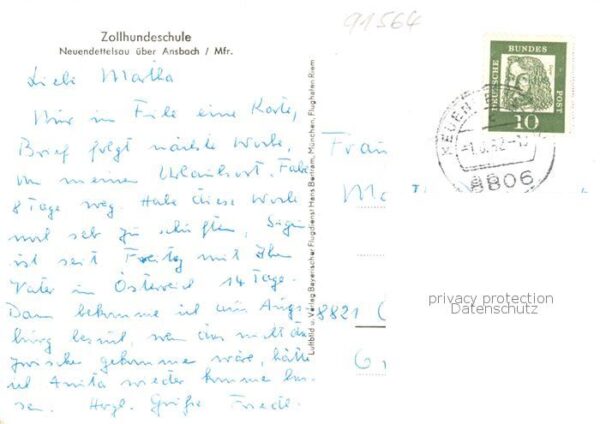 91564
Zollhundeschule
Neuendettelsau über Ansbach / Mfr.
Liebe Martha
Nur in Eile eine Karte,
Brief folgt nächste Woche,
von meinem Urlaubsort. Fahre
8 Tage weg. Habe diese Woche
noch sehr zu schuften,
ist seit Freitag mit ihrem
Vater in Österreich 14 Tage.
Dann bekomme ich
Besuch, wenn das nicht da-
zwischen gekommen wäre, hätte
ich Anita wieder kommen las-
sen. Herzl. Grüße Friedl.
Luftbild u. Verlag Bayerischer Flugdienst Hans Bertram, München, Flughafen Riem
DEUTSCHE
BUNDES
POST
10
8806
Frau
8821
privacy protection
Datenschutz